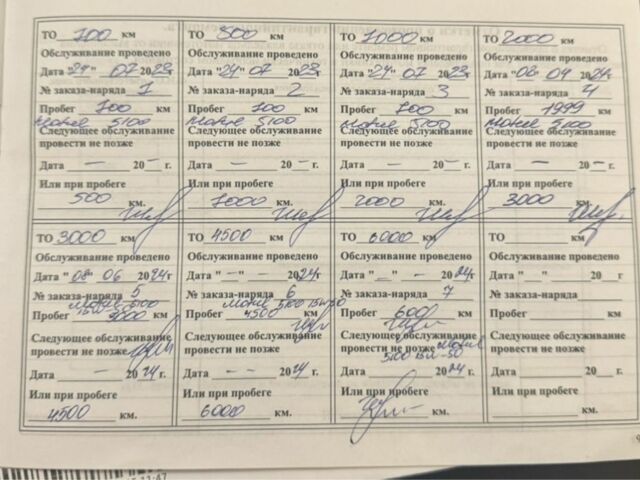 ТО 100 км
Обслуживание проведено
Дата "24" 07 2023 г
№ заказа-наряда 1
Пробег 100 км
Следующее обслуживание
провести не позже
Дата — 20 — г.
Или при пробеге
500 км.
ТО 500 км
Обслуживание проведено
Дата "24" 07 2023 г
№ заказа-наряда 2
Пробег 100 км
5100
Следующее обслуживание
провести не позже
Дата — 20 — г.
Или при пробеге
1000 км.
ТО 1000 км
Обслуживание проведено
Дата "24" 07 2023 г
№ заказа-наряда 3
Пробег 100 км
5100
Следующее обслуживание
провести не позже
Дата — 20 — г.
Или при пробеге
2000 км.
ТО 2000 км
Обслуживание проведено
Дата "06" 04 2024 г
№ заказа-наряда 4
Пробег 1999 км
5100
Следующее обслуживание
провести не позже
Дата — 20 — г.
Или при пробеге
3000 км.
ТО 3000 км
Обслуживание проведено
Дата "08" 06 2024 г
№ заказа-наряда 5
Пробег 3000 км
Следующее обслуживание
провести не позже
Дата — 2024 г.
Или при пробеге
4500 км.
ТО 4500 км
Обслуживание проведено
Дата "—" — 2024 г
№ заказа-наряда 6
5100
Пробег 4500 км
Следующее обслуживание
провести не позже
Дата — — 2024 г.
Или при пробеге
6000 км.
ТО 6000 км
Обслуживание проведено
Дата "—" — 2024 г
№ заказа-наряда 7
Пробег 600 км
Следующее обслуживание
провести не позже
5100
Дата 2024 г.
Или при пробеге
км.
ТО км
Обслуживание проведено
Дата " " 20 г.
№ заказа-наряда
Пробег км
Следующее обслуживание
провести не позже
Дата 20 г.
Или при пробеге
км.